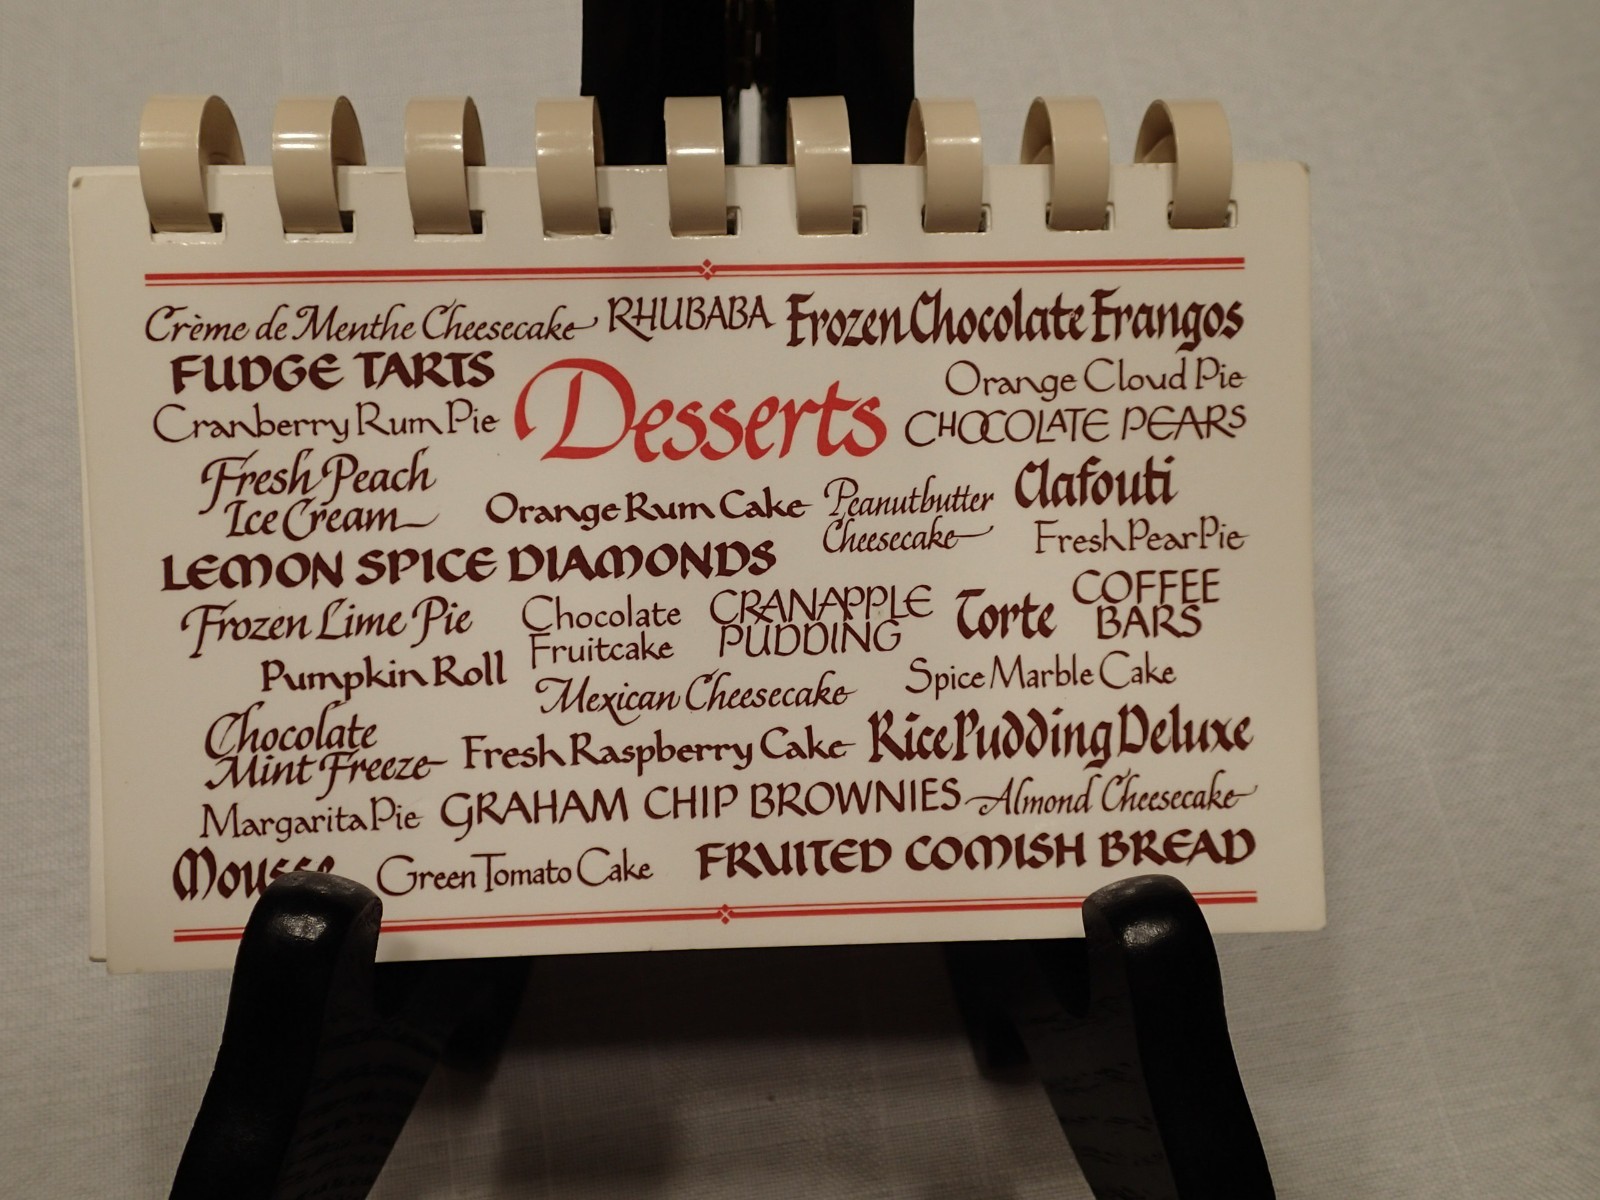 Crème de Menthe Cheesecake RHUBABA Frozen Chocolate Frangos
FUDGE TARTS
Desserts
Orange Cloud Pie
Cranberry Rum Pie
CHOCOLATE PEARS
Fresh Peach
Ice Cream
Orange Rum Cake
Peanutbutter
Cheesecake
Clafouti
Fresh Pear Pie
LEMON SPICE DIAMONDS
Frozen Lime Pie
Chocolate
Fruitcake
CRANAPPLE
PUDDING
Torte
COFFEE
BARS
Pumpkin Roll
Mexican Cheesecake
Spice Marble Cake
Chocolate
Mint Freeze
Fresh Raspberry Cake
Rice Pudding Deluxe
Margarita Pie GRAHAM CHIP BROWNIES Almond Cheesecake
Mousse Green Tomato Cake FRUITED COMISH BREAD